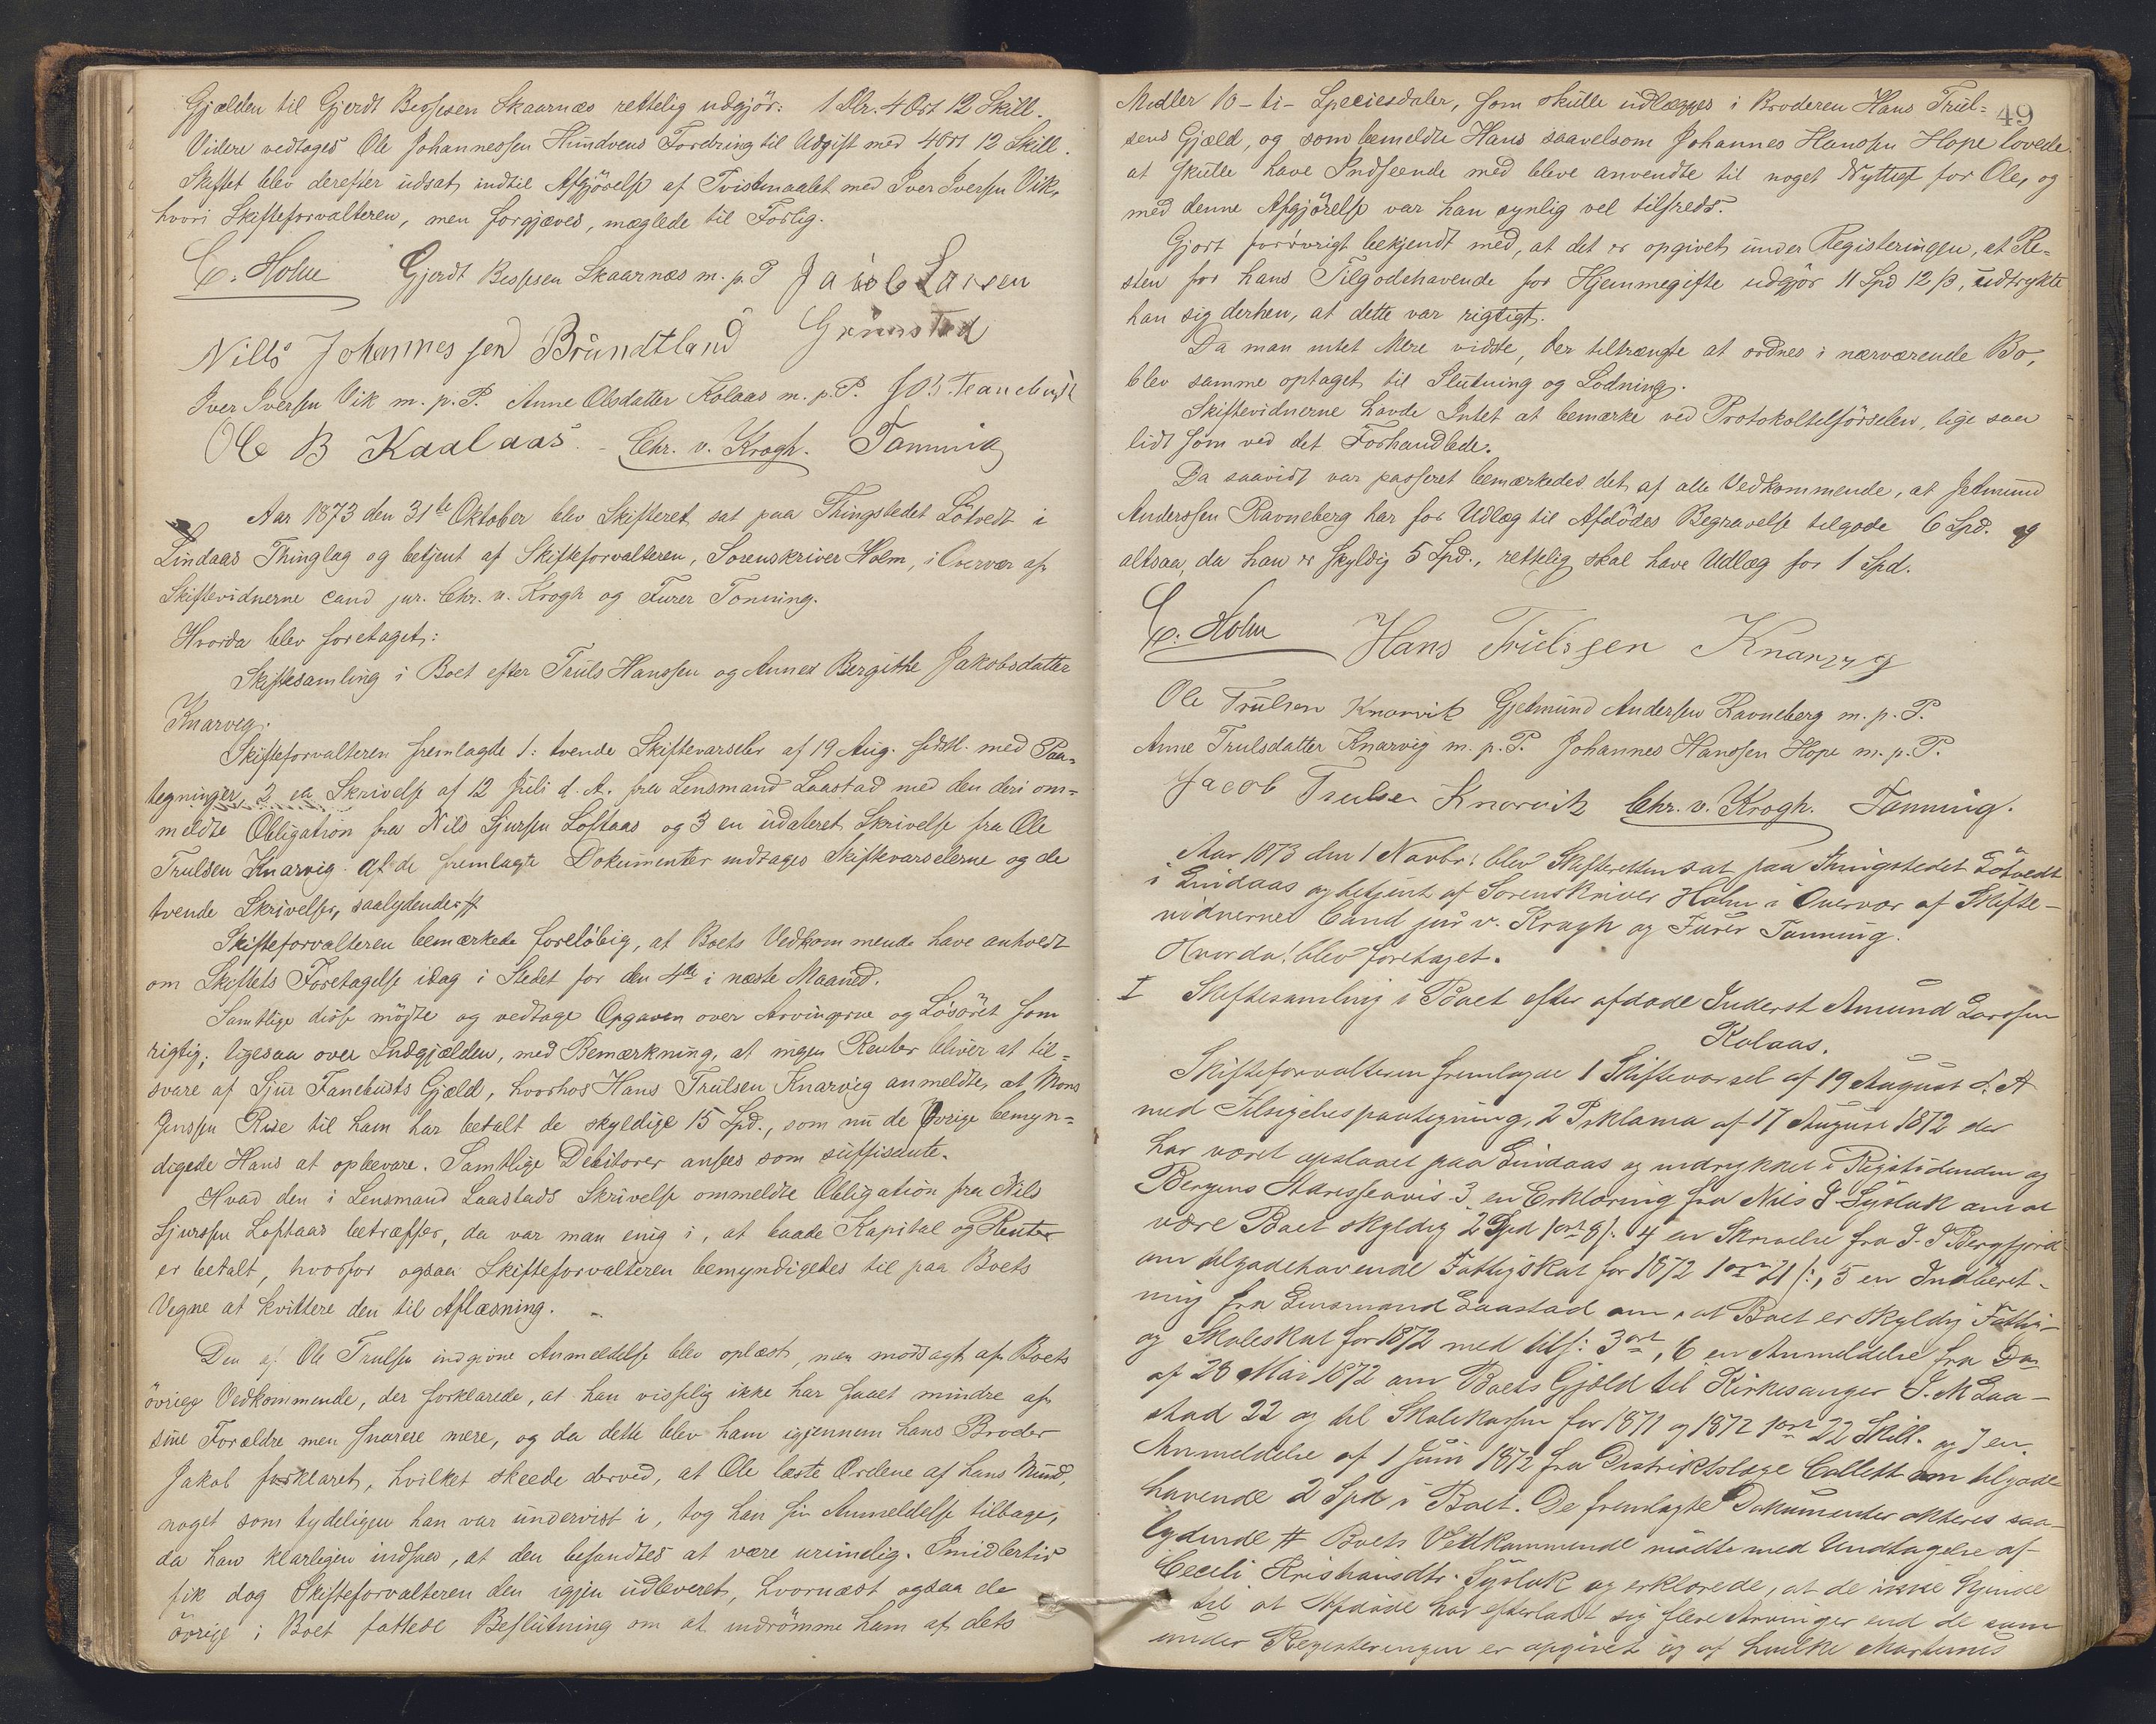 Gjælden til Gjerdt Bessesen Skaarnæs rettelig udgjör: 1 Dlr. 4 Ort 12 Skill.
Videre vedtages Ole Johannessen Hundvens Fordring til Udgift med 4 Ort 12 Skill.
Skiftet blev derefter udsat indtil Afgjörelse af Tvistemaalet med Iver Iversen Vik,
hvori Skifteforvalteren, men forgjæves, mæglede til Forlig.
C. Holm Gjerdt Bessesen Skaarnæs m. p. P Jacob Larsen
Nills Johannessen Brundtland Grimstad
Iver Iversen Vik m. p. P. Anne Olsdatter Kolaas m. p. P.
Ole B Kaalaas. Chr. v. Krogh. Tonning
Aar 1873 den 31te Oktober blev Skifteret sat paa Thingstedet Lötvedt i
Lindaas Thinglag og betjent af Skifteforvalteren, Sorenskriver Holm, i Overvær af
Skiftevidnerne cand jur. Chr. v. Krogh og Furer Tonning.
Hvorda blev foretaget:
Skiftesamling i Boet efter Truls Hanssen og Anne Bergithe Jakobsdatter
Knarvig.
Skifteforvalteren fremlagte 1: tvende Skiftevarseler af 19 Aug. sidstl. med Paa-
tegninger, 2 en Skrivelse af 12 Juli d. A. fra Lensmand Laastad med den deri om-
meldte Obligation fra Nils Sjursen Loftaas og 3 en udateret Skrivelse fra Ole
Trulsen Knarvig. Af de fremlagte Dokumenter indtages Skiftevarselerne og de
tvende Skrivelser, saalydende #
Skifteforvalteren bemærkede foreløbig, at Boets Vedkommende have anholdt
om Skiftets Foretagelse idag i Stedet for den 4de i næste Maaned.
Samtlige disse mödte og vedtoge Opgaven over Arvingerne og Lösöret som
rigtig; ligesaa over Indgjælden, med Bemærkning, at ingen Renter bliver at til-
svare af Sjur Fanebusts Gjæld, hvorhos Hans Trulsen Knarvig anmeldte, at Mons
Jenssen Rise til ham har betalt de skyldige 15 Spd., som nu de Øvrige bemyn-
digede Hans at opbevare. Samtlige Debitorer ansees som suffisente.
Hvad den i Lensmand Laastads Skrivelse ommeldte Obligation fra Nils
Sjurssen Loftaas betræffer, da var man enig i, at baade Kapital og Renter
er betalt, hvorfor ogsaa Skifteforvalteren bemyndigedes til paa Boets
Vegne at kvittere den til Aflæsning.
Den af Ole Trulsen indgivne Anmeldelse blev oplæst, men modsagt af Boets
övrige Vedkommende, der forklarede, at han visselig ikke har faaet mindre af
sine Forældre men snarere mere, og da dette blev ham igjennem hans Broder
Jakob forklaret, hvilket skeede derved, at Ole læste Ordene af hans Mund,
noget som tydeligen han var undervist i, tog han sin Anmeldelse tilbage,
da han klarligen indsaa, at den befandtes at være urimelig. Imidlertid
fik dog Skifteforvalteren den igjen udleveret, hvornæst ogsaa de
övrige i Boet fattede Beslutning om at indrömme ham af dets
49
Midler 10 - ti - Speciesdaler, som skulle udlægges i Broderen Hans Trul-
sens Gjæld, og som bemeldte Hans saavelsom Johannes Hanssen Hope lovede
at skulle have Indseende med bleve anvendte til noget Nyttigt for Ole, og
med denne Afgjörelse var han synlig vel tilfreds.
Gjort forövrigt bekjendt med, at det er opgivet under Registeringen, at Re-
sten for hans Tilgodehavende for Hjemmegifte udgjör 11 Spd 12 ß, udtrykte
han sig derhen, at dette var rigtigt.
Da man intet Mere vidste, der tiltrængte at ordnes i nærværende Bo,
blev samme optaget til Slutning og Lodning.
Skiftevidnerne havde Intet at bemærke ved Protokoltilförselen, lige saa
lidt som ved det Forhandlede.
Da saavidt var passeret bemærkedes det af alle Vedkommende, at Jetmund
Anderssen Ravneberg har for Udlæg til Afdödes Begravelse tilgode 6 Spd. og
altsaa, da han er skyldig 5 Spd., rettelig skal have Udlæg for 1 Spd.
C. Holm Hans Trulssen Knarvig
Ole Trulsen Knarvik Gjetmund Andersen Ravneberg m. p. P.
Anne Trulsdatter Knarvig m. p. P. Johannes Hanssen Hope m. p. P.
Jacob Trulsen Knarvik Chr. v. Krogh. Tonning.
Aar 1873 den 1 Novbr. blev Skifteretten sat paa Thingstedet Lötvedt
i Lindaas og betjent af Sorenskriver Holm i Overvær af Skifte-
vidnerne Cand jur v. Krogh og Furer Tonning.
Hvorda blev foretaget.
I Skiftesamling i Boet efter afdøde Inderst Amund Larssen
Kolaas.
Skifteforvalteren fremlagde 1 Skiftevarsel af 19 August d. A
med Tilsigelsespaategning, 2 Proklama af 17 August 1872 der
har været opslaaet paa Lindaas og indrykket i Rigstidenden og
Bergens Adresseavis 3 en Erklæring fra Nils J Syslak om at
være Boet skyldig 2 Spd 1 ort 8 ß. 4 en Skrivelse fra J. J Bergfjord
om tilgodehavende Fattigskat for 1872 1 ort 21 ß:, 5 en Indberet-
ning fra Lensmand Laastad om, at Boet er skyldig Fattig-
og Skoleskat for 1872 med tils: 3 ort, 6 en Anmeldelse fra Do
af 28 Mai 1872 om Boets Gjæld til Kirkesanger J. M Laa-
stad 22 og til Skolekassen for 1871 og 1872 1 ort 22 Skill. og 7 en
Anmeldelse af 1 Juni 1872 fra Distriktslæge Collett om tilgode
havende 2 Spd i Boet. De fremlagte Dokumenter akteres saa-
lydende # Boets Vedkommende mødte med Undtagelse af
Cecili Kristiansdtr. Syslak og erklærede, at de ikke kjende
til at Afdøde har efterladt sig flere Arvinger end de som
under Registeringen er opgivet og af hvilke Martinus